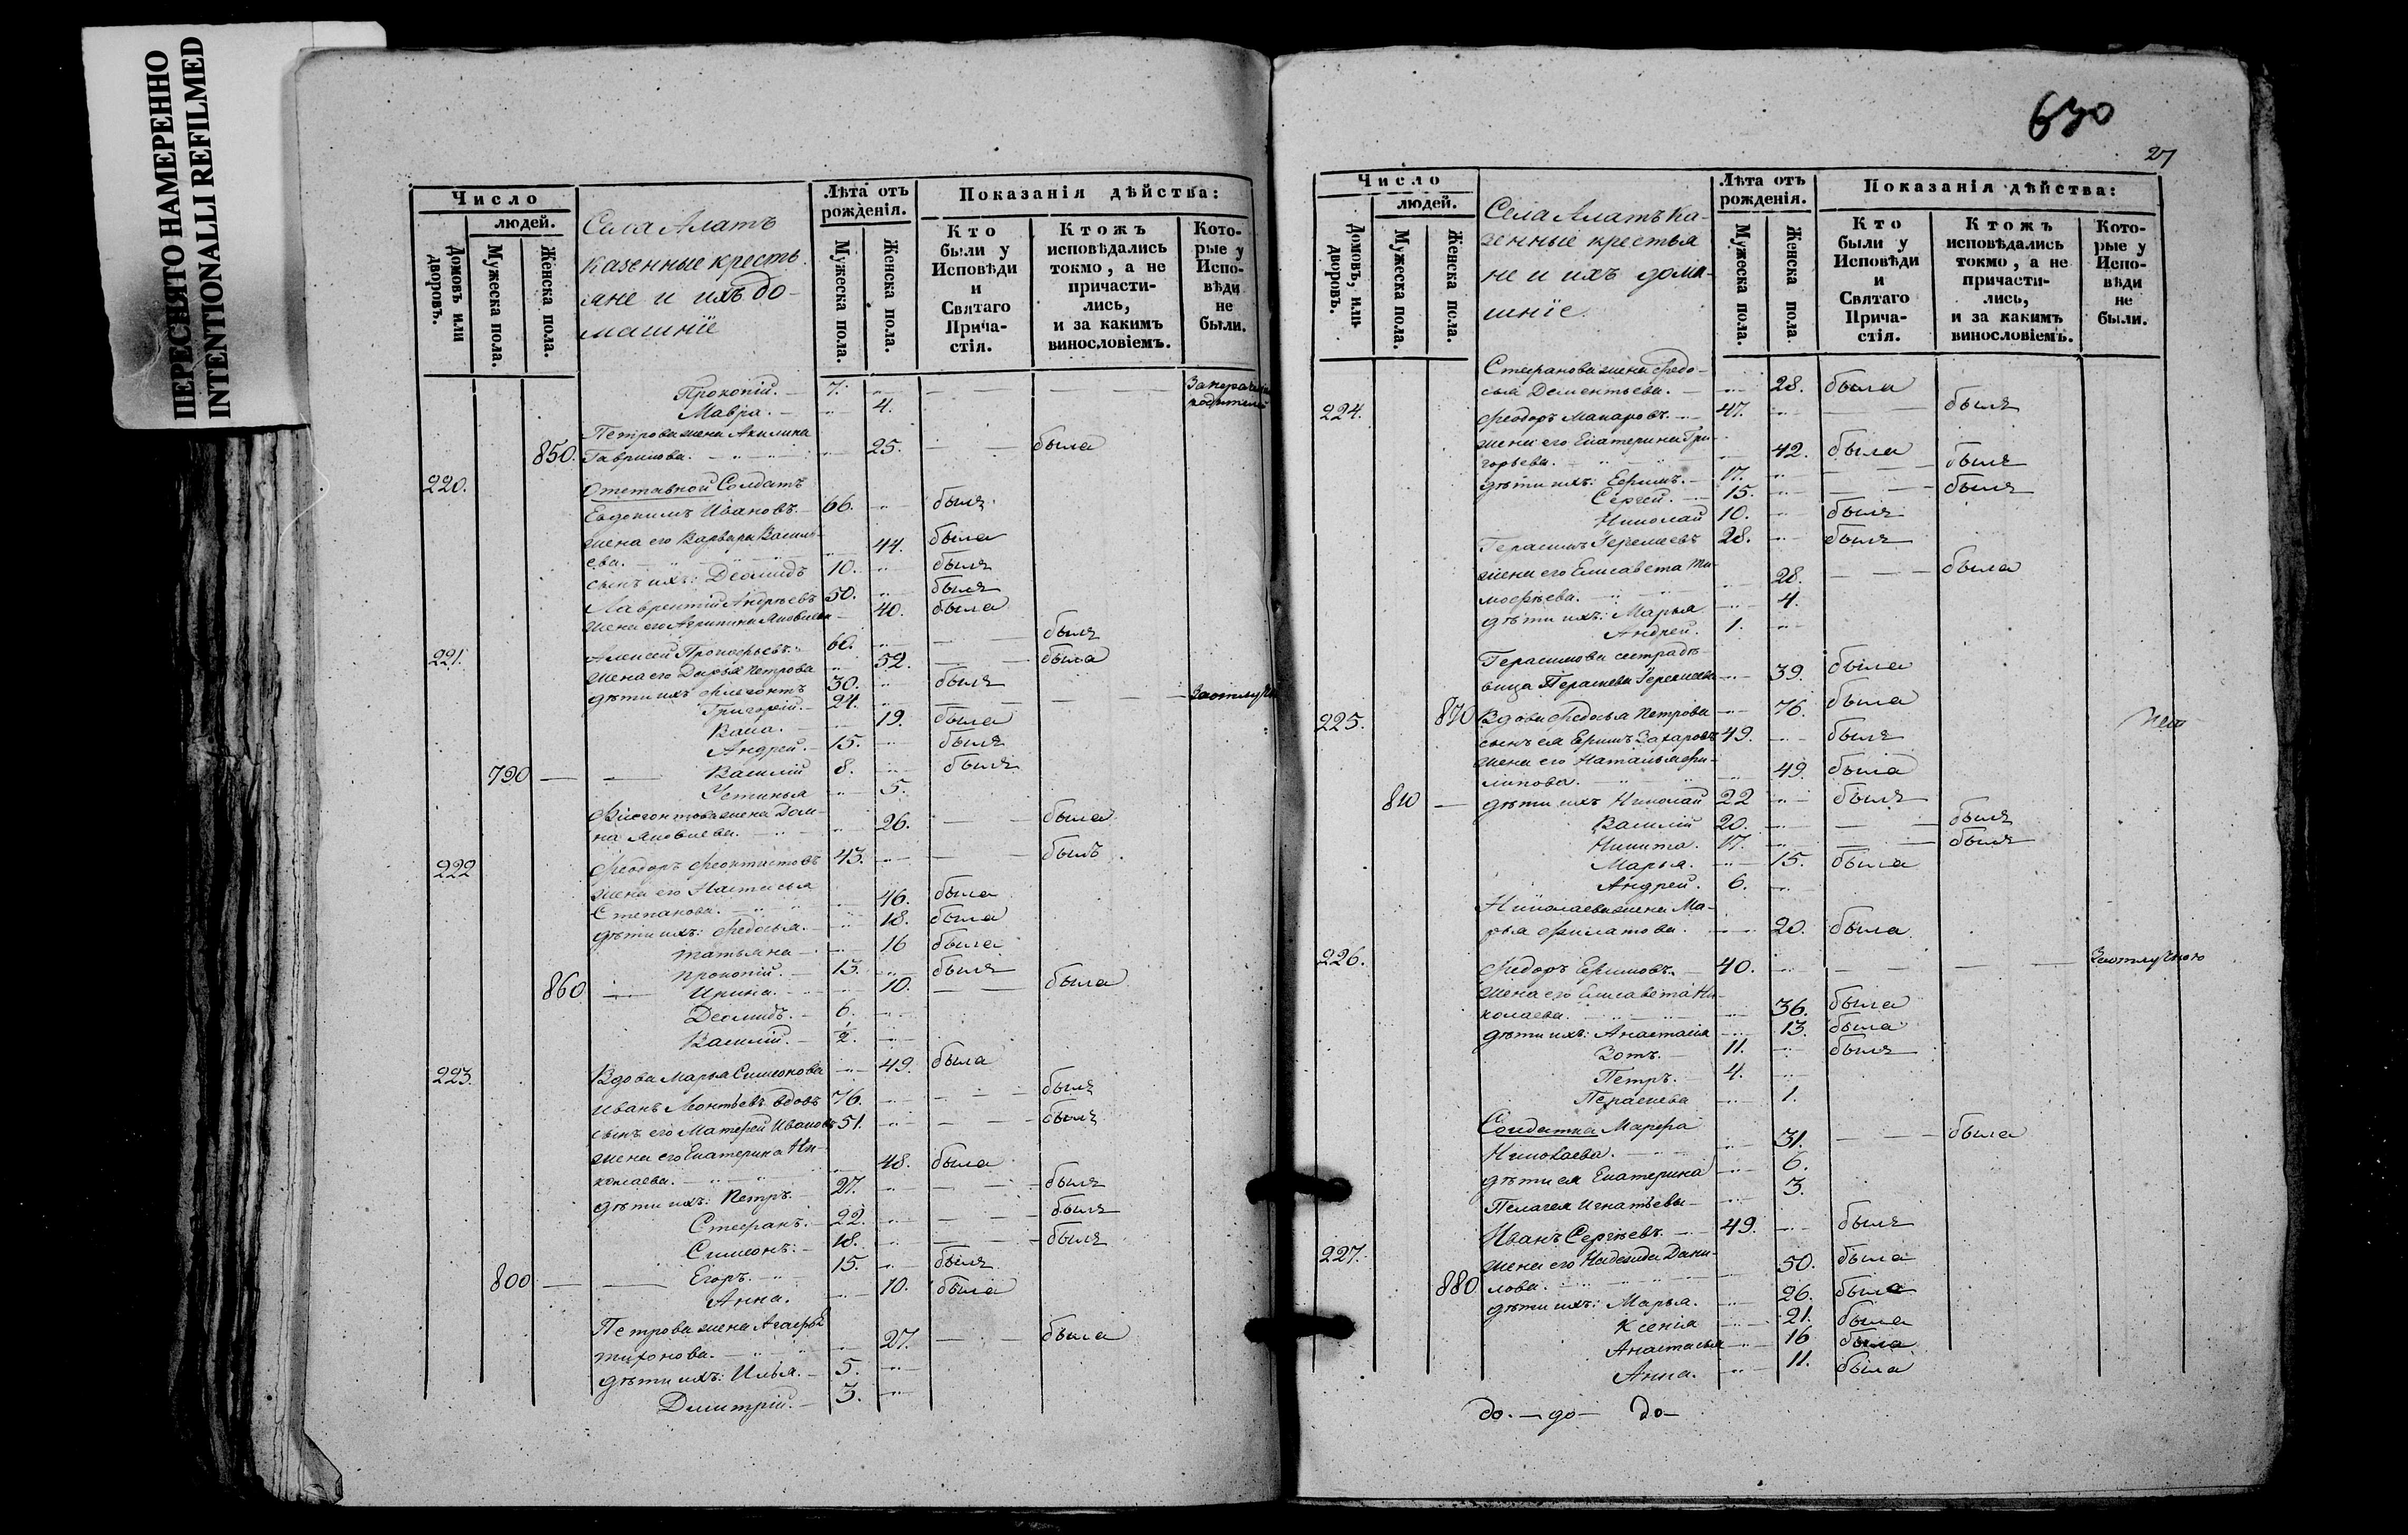 ПЕРЕСНЯТО НАМЕРЕННО
INTENTIONALLI REFILMED
Число
людей.
Домовъ или дворовъ.
Мужеска пола.
Женска пола.
Села Алатъ
казенные кресть
яне и ихъ до-
машніе
Лѣта отъ рожденія.
Мужеска пола.
Женска пола.
Показанія дѣйства:
Кто были у Исповѣди и Святаго Прича-стія.
Ктожъ исповѣдались токмо, а не причасти-лись, и за какимъ винословіемъ.
Кото-рые у Испо-вѣди не были.
Прокопій. 7.
Мавра. 4.
Петрова жена Акилина
850. Гаврилова. 25. была
220. Отставной Солдатъ
Евдокимъ Ивановъ. 66. былъ
жена его Варвара Василь-
ева. 44. была
сынъ ихъ: Деомидъ 10. былъ
Лаврентій Андреевъ 50. былъ
жена его Агрипина Яковлева 40. была
221. Алексей Прокофьевъ. 60. былъ
жена его Дарья Петрова 52. была
дѣти ихъ Флегонтъ 30. былъ
Григорій. 24.
Васа. 19. была
Андрей. 15. былъ
790 Василій 8. былъ
Устинья 5.
Флегонтова жена Дом-
на Яковлева. 26. была
222 Феодоръ Феоктистовъ 43. былъ
жена его Настасья
Степанова. 46. была
дѣти ихъ: Федосья. 18. была
татьяна 16 была
прокопій. 13. былъ
860 Ирина. 10. была
Деомидъ. 6.
Василій. 1/2.
223. Вдова Марья Симеонова 49. была
иванъ Леонтьевъ вдовъ 76. былъ
сынъ его Матфей Ивановъ 51. былъ
жена его Екатерина Ни-
колаева. 48. была
дѣти ихъ: Петръ. 27. былъ
Стефанъ. 22. былъ
Симеонъ. 18. былъ
800 Егоръ. 15. былъ
Анна. 10. была
Петрова жена Агафья
тихонова. 27. была
дѣти ихъ: Илья. 5.
Димитрій. 3.
630
27
Число
людей.
Домовъ, или дворовъ.
Мужеска пола.
Женска пола.
Села Алатъ Ка-
зенные крестья
не и ихъ дома-
шніе.
Лѣта отъ рожденія.
Мужеска пола.
Женска пола
Показанія дѣйства:
Кто были у Исповѣди и Святаго Прича-стія.
Ктожъ исповѣдались токмо, а не причасти-лись, и за какимъ винословіемъ.
Кото-рые у Испо-вѣди не были.
Стефанова жена Федо-
сья Дементьева. 28. была
224. Феодоръ Макаровъ. 47. былъ
жена его Екатерина Гри-
горьева. 42. была
дѣти ихъ: Ефимъ. 17. былъ
Сергей. 15. былъ
Николай 10. былъ
Герасимъ Еремеевъ 28. былъ
жена его Елисавета Ти-
мофѣева. 28. была
дѣти ихъ: Марья 4.
Андрей. 1.
Герасимова сестра дѣ-
вица Параскева Еремеева 39. была
225. 870 Вдова Федосья Петрова 76. была
сынъ ея Ефимъ Захаровъ 49. былъ
жена его Наталья Фи-
липова. 49. была
810 дѣти ихъ Николай 22 былъ
Василій 20. былъ
Никита. 17. былъ
Марья. 15. была
Андрей. 6.
Николаева жена Ма-
рья Филатова. 20. была
226. Федоръ Ефимовъ. 40. За отлучкою
жена его Елисавета Ни-
колаева. 36. была
дѣти ихъ: Анастасія 13. была
Зотъ. 11. былъ
Петръ. 4.
Параскева 1.
Солдатка Марфа
Николаева. 31. была
дѣти ея Екатерина 6.
Пелагея Игнатьевы 3.
227. Иванъ Сергѣевъ. 49. былъ
жена его Надежда Дани-
880 лова. 50. была
дѣти ихъ: Марья. 26. была
Ксенія 21. была
Анастасья 16 была
Анна. 11. была
до. — до — до —